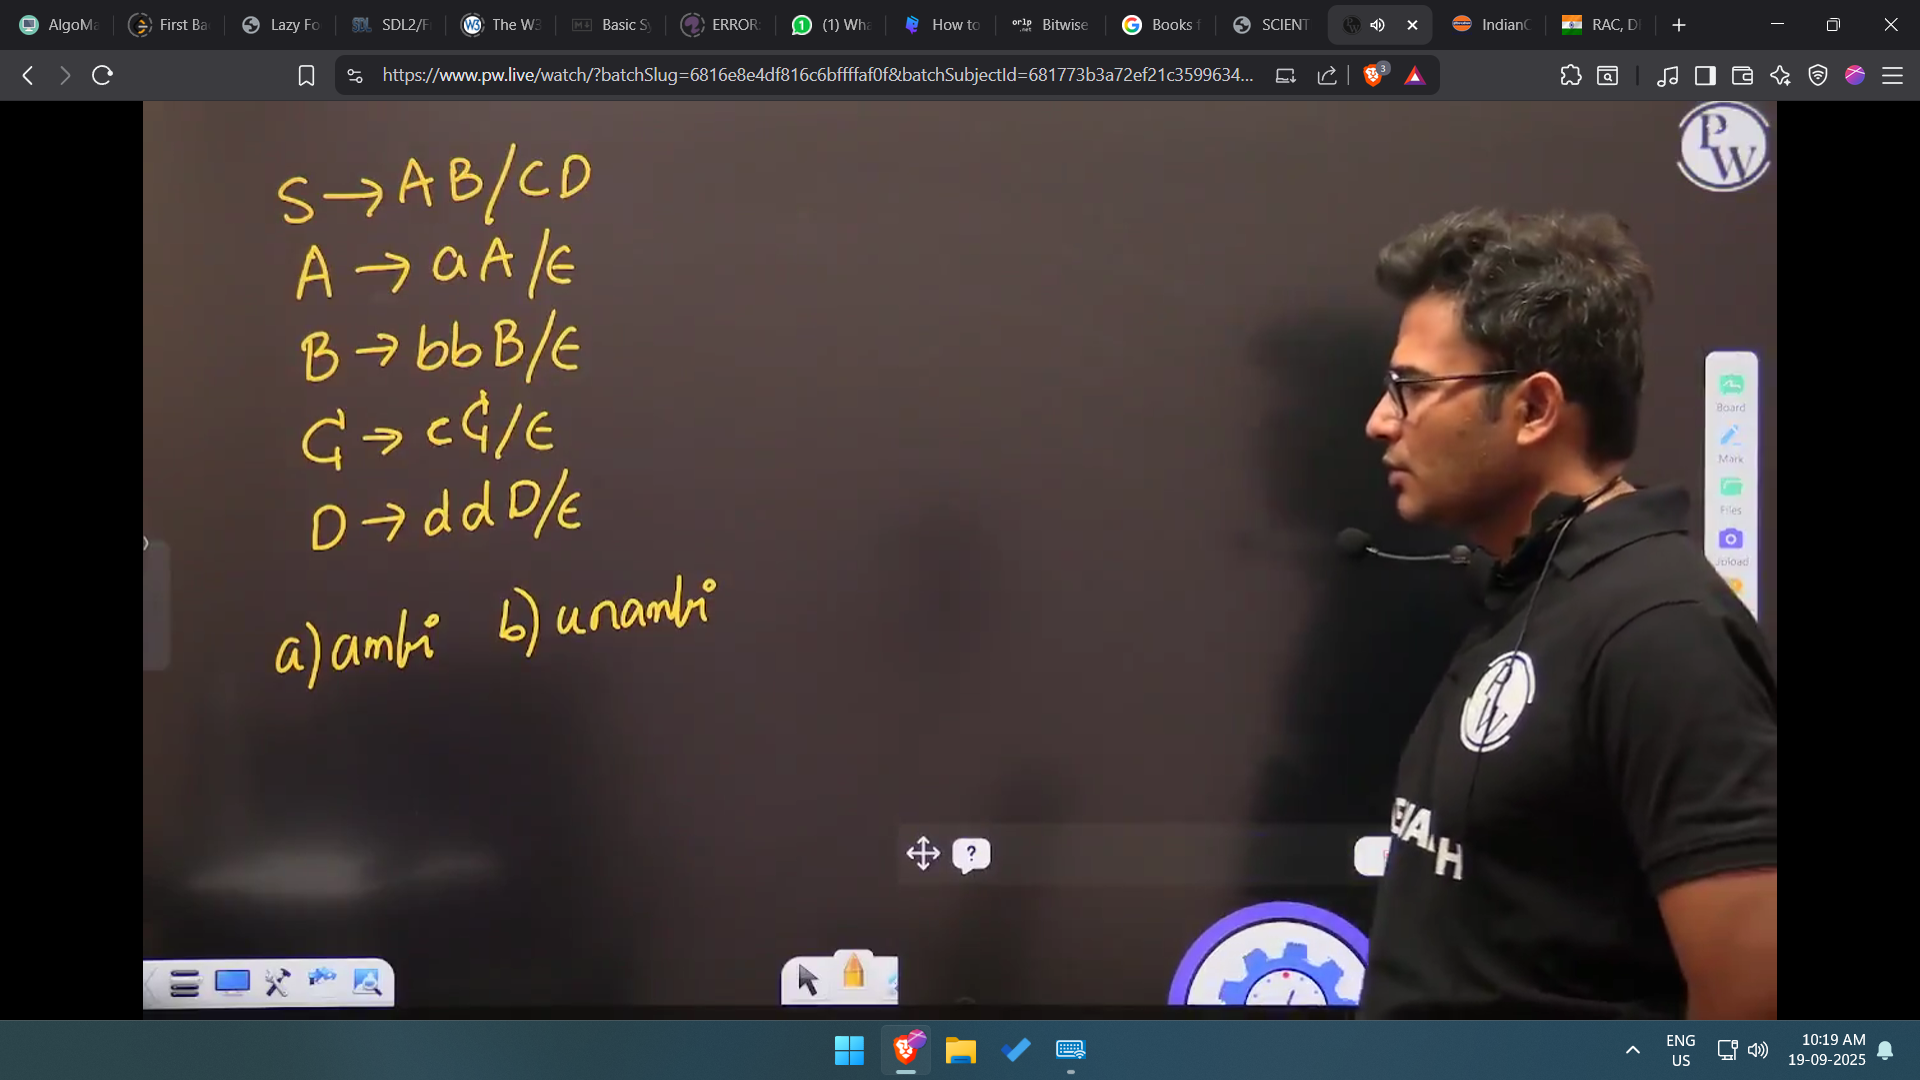 AlgoMa
First Ba
Lazy Fo
SDL2/F
The W3
Basic Sy
ERROR:
(1) Wha
How to
orlp .net Bitwise
Books f
SCIENT
IndianC
RAC, D
https://www.pw.live/watch/?batchSlug=6816e8e4df816c6bffffaf0f&batchSubjectId=681773b3a72ef21c3599634...
3
PW
S → AB/CD
A → aA/ϵ
B → bbB/ϵ
C → cC/ϵ
D → ddD/ϵ
a) ambi b) unambi
Board
Mark
Files
Upload
?
ENG
US
10:19 AM
19-09-2025